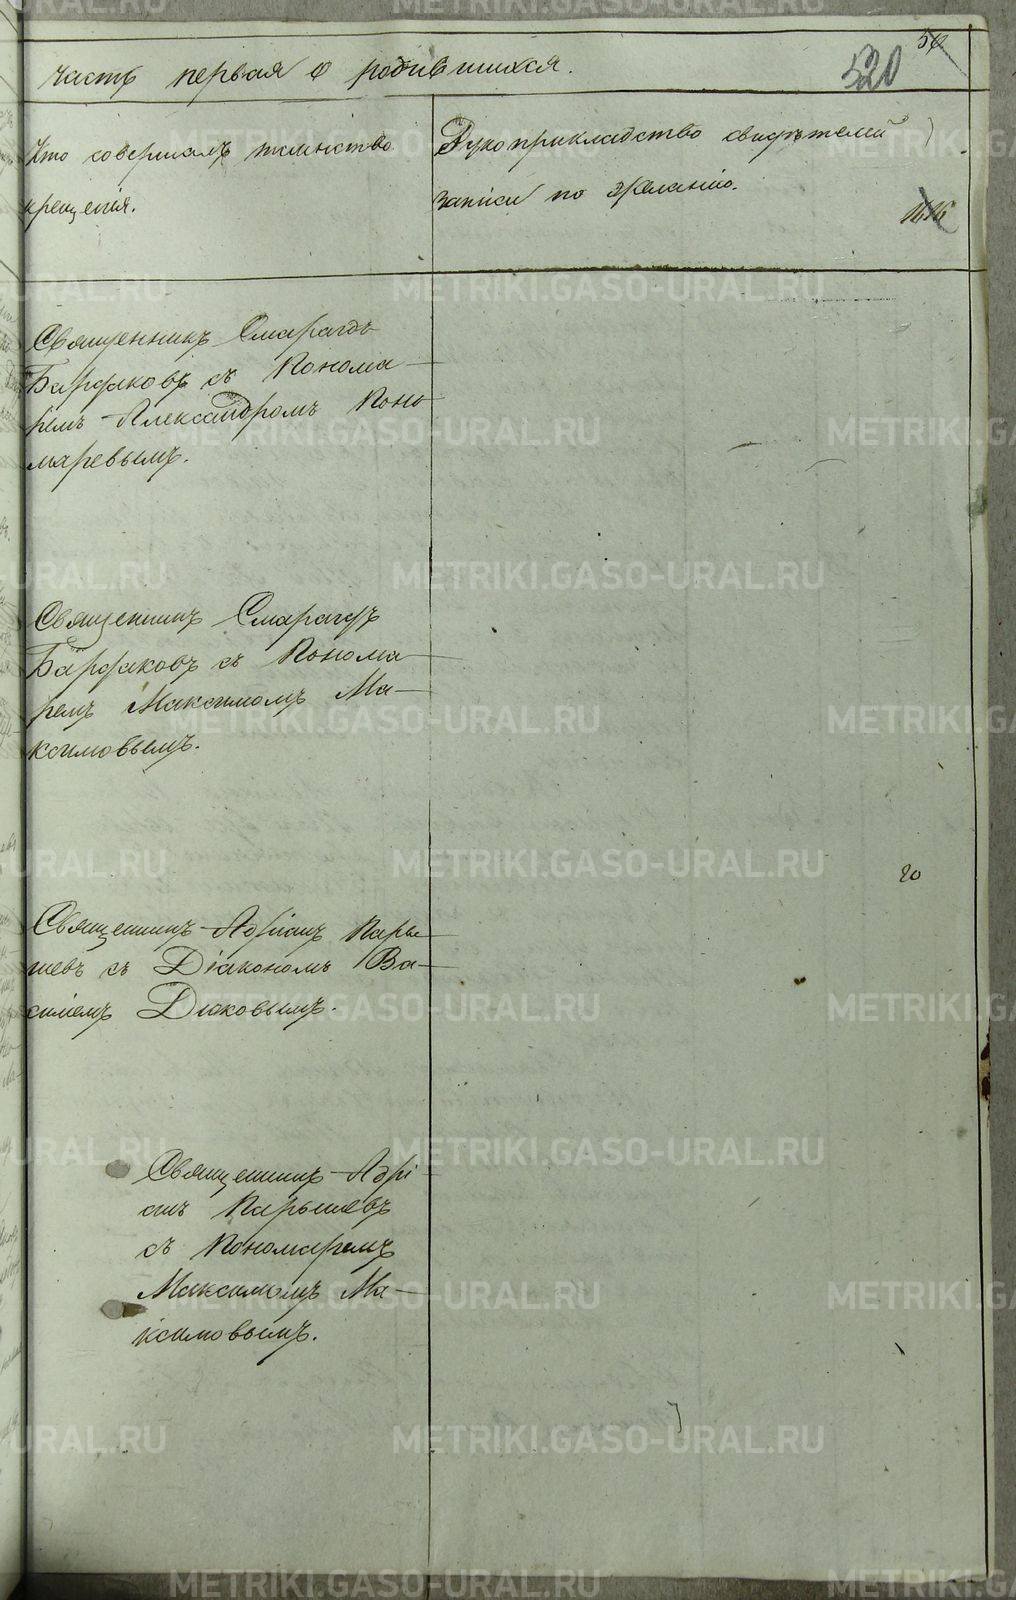 50
520
часть первая о родившихся.
Кто совершалъ таинство
крещенія.
Рукоприкладство свидѣтелей
записи по желанію.
Священникъ Смарагдъ
Барфаковъ съ Понома-
ремъ Александромъ Поно
маревымъ.
Священникъ Смарагдъ
Барфаковъ съ Понома-
ремъ Максимомъ Ма-
ксимовымъ.
20
Священникъ Адріанъ Пары-
шевъ съ Діакономъ Ва-
силіемъ Дьяковымъ.
Священникъ Адрі
анъ Парышевъ
съ Пономаремъ
Максимомъ Ма-
ксимовымъ.
METRIKI.GASO-URAL.RU